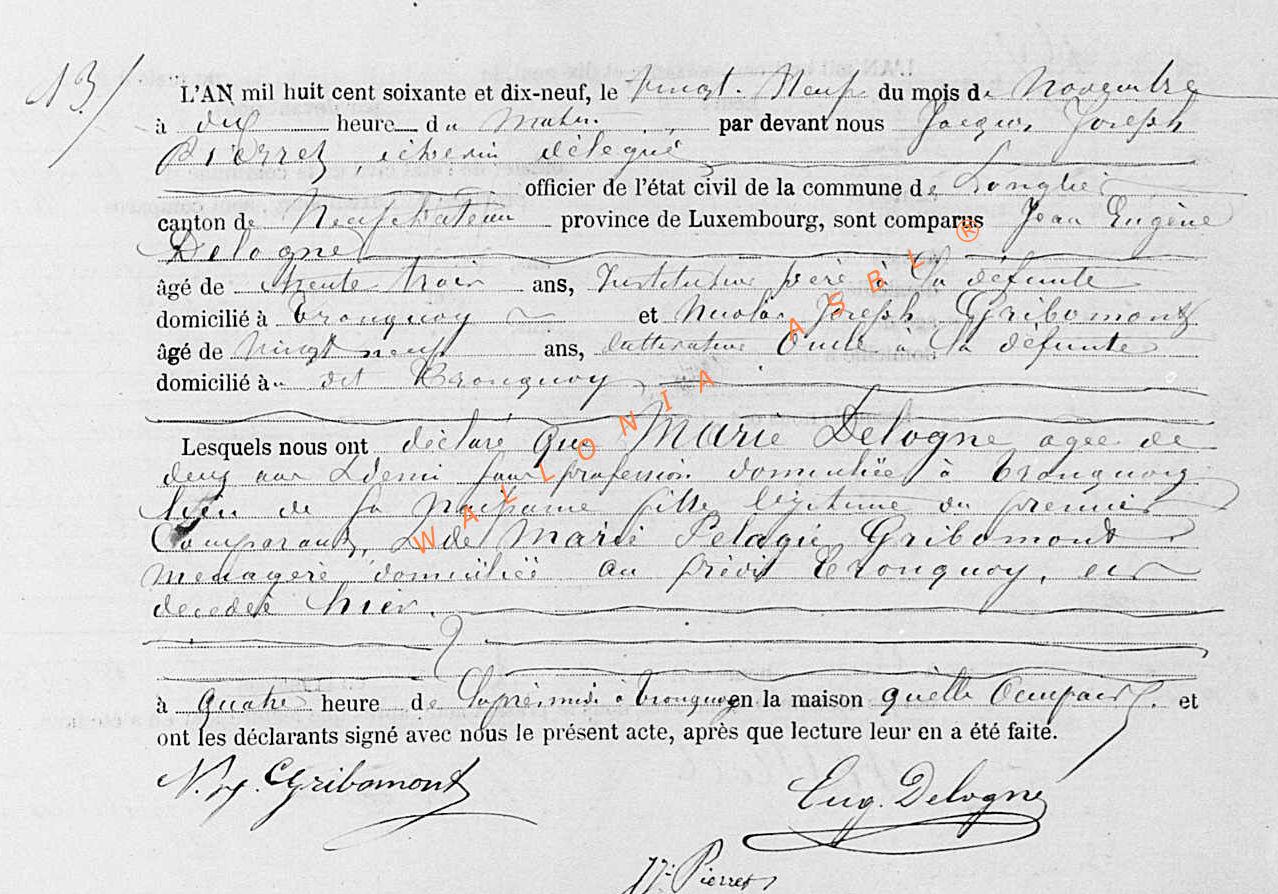 13/
L'AN mil huit cent soixante et dix-neuf, le vingt-Neuf du mois de Novembre
à dix heure du Matin par devant nous Jacques Joseph
Pierret, échevin délégué
officier de l'état civil de la commune de Longlier
canton de Neufchateau province de Luxembourg, sont comparus Jean Eugène
Delogne
âgé de trente trois ans, Instituteur père à la défunte
domicilié à Tronquoy et Nicolas Joseph Gribomont
âgé de vingt neuf ans, cultivateur Oncle à la défunte
domicilié à dit Tronquoy
Lesquels nous ont déclaré que Marie Delogne agée de
deux ans & demi sans profession domiciliée à Tronquoy
lieu de sa naissance fille légitime du premier
Comparant, & de Marie Pelagie Gribomont
menagère domiciliée au prédit Tronquoy, est
decedée hier.
à quatre heure de l'après midi à Tronquoy en la maison quelle Occupait. et
ont les déclarants signé avec nous le présent acte, après que lecture leur en a été faite.
N. J. Gribomont
Eug. Delogne
JJ. Pierret
WALLONIA ASBL ®